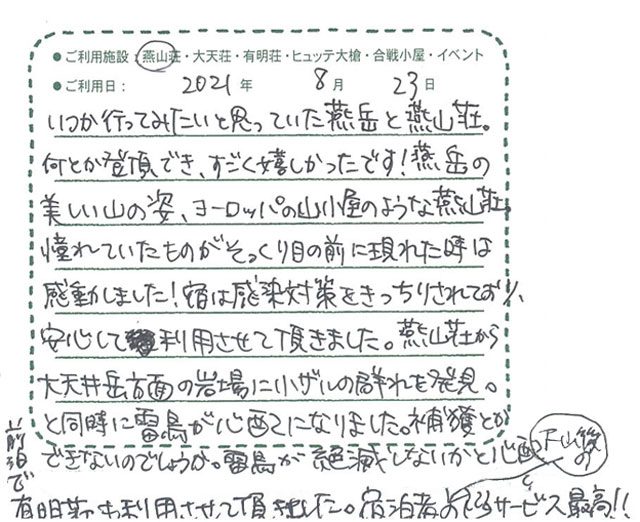 ●ご利用施設：燕山荘・大天荘・有明荘・ヒュッテ大槍・合戦小屋・イベント
●ご利用日： 2021 年 8 月 23 日
いつか行ってみたいと思っていた燕岳と燕山荘。
何とか登頂でき、すごく嬉しかったです！燕岳の
美しい山の姿、ヨーロッパの山小屋のような燕山荘。
憧れていたものがそっくり目の前に現れた時は
感動しました！宿は感染対策をきっちりされており、
安心して利用させて頂きました。燕山荘から
大天井岳方面の岩場に小ザルの群れを発見。
と同時に雷鳥が心配になりました。捕獲とか
できないのでしょうか。雷鳥が絶滅しないかと心配
前泊で
有明荘も利用させて頂きました。宿泊者
下山後の
サービス最高!!